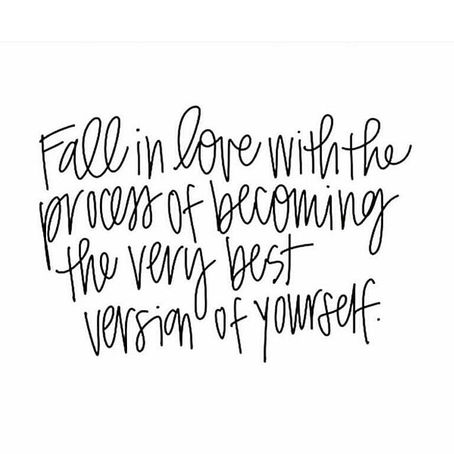 Fall in love with the
process of becoming
the very best
version of yourself.